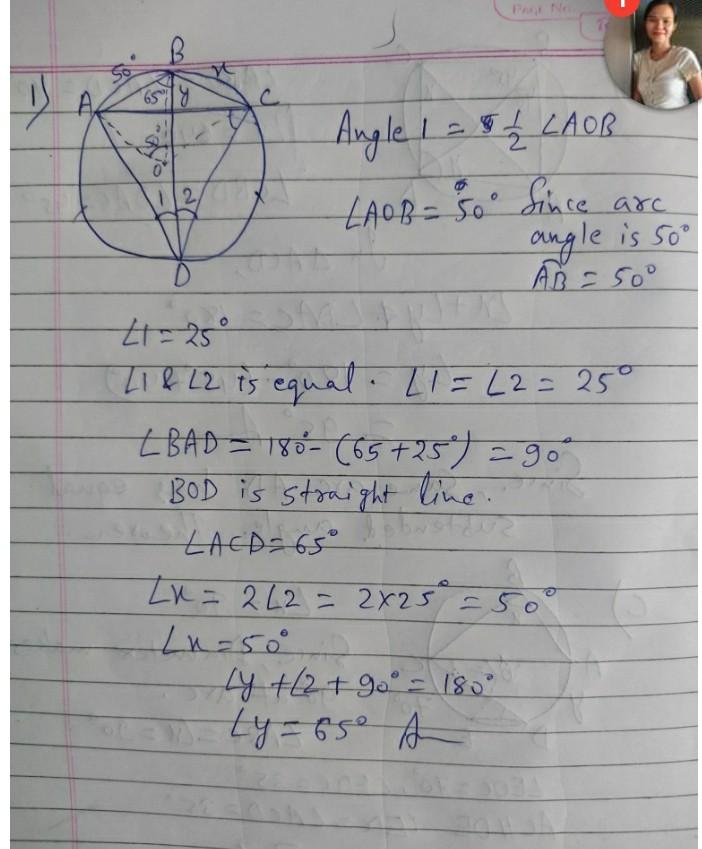 Page No.
1)
B
50°
x
A
65°
y
C
O
1
2
D
Angle 1 = 1/2 ∠AOB
∠AOB = 50° Since arc
angle is 50°
AB = 50°
∠1 = 25°
∠1 & ∠2 is equal. ∠1 = ∠2 = 25°
∠BAD = 180° - (65 + 25°) = 90°
BOD is straight line.
∠ACD = 65°
∠x = 2∠2 = 2×25° = 50°
∠x = 50°
∠y + ∠2 + 90° = 180°
∠y = 65°